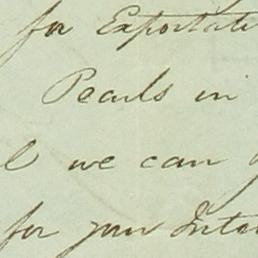 for Exportati
Pearls in
l we can
for your Inte